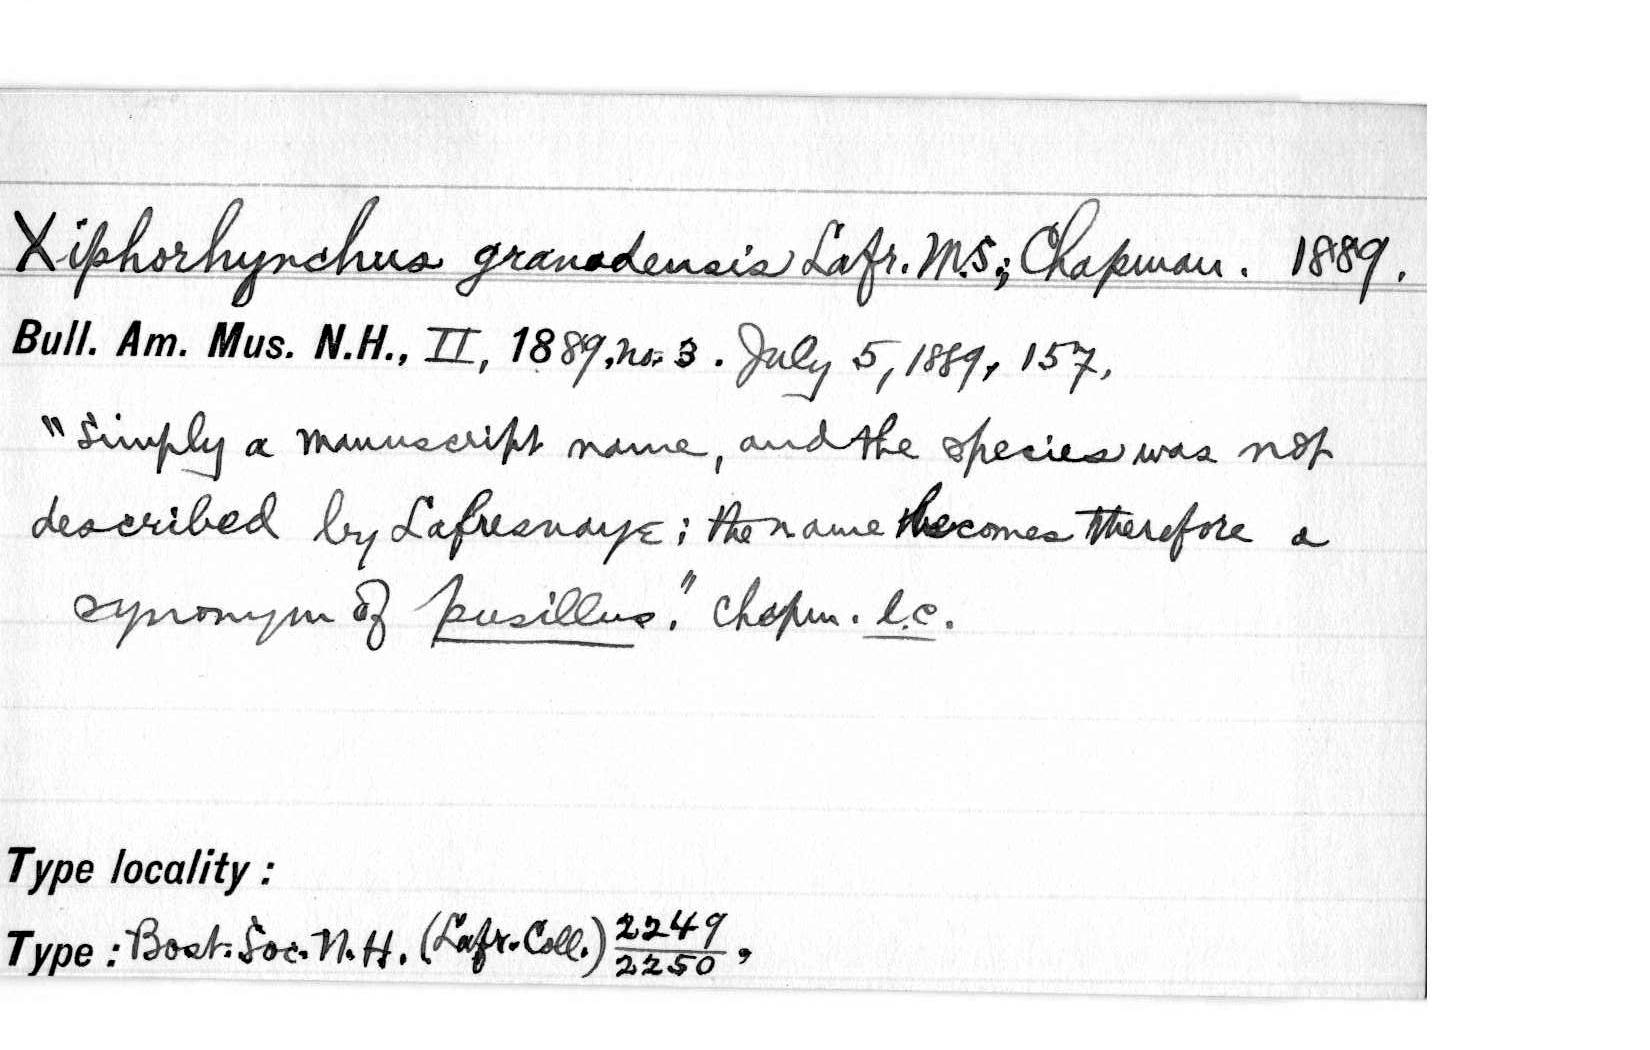 Xiphorhynchus granadensis Lafr. M.S.; Chapman. 1889.
Bull. Am. Mus. N.H., II, 1889, no. 3. July 5, 1889, 157,
"Simply a manuscript name, and the species was not
described by Lafresnaye; the name becomes therefore a
synonym of pusillus." Chapm. l.c.
Type locality:
Type: Bost. Soc. N.H. (Lafr. Coll.) 2249/2250,